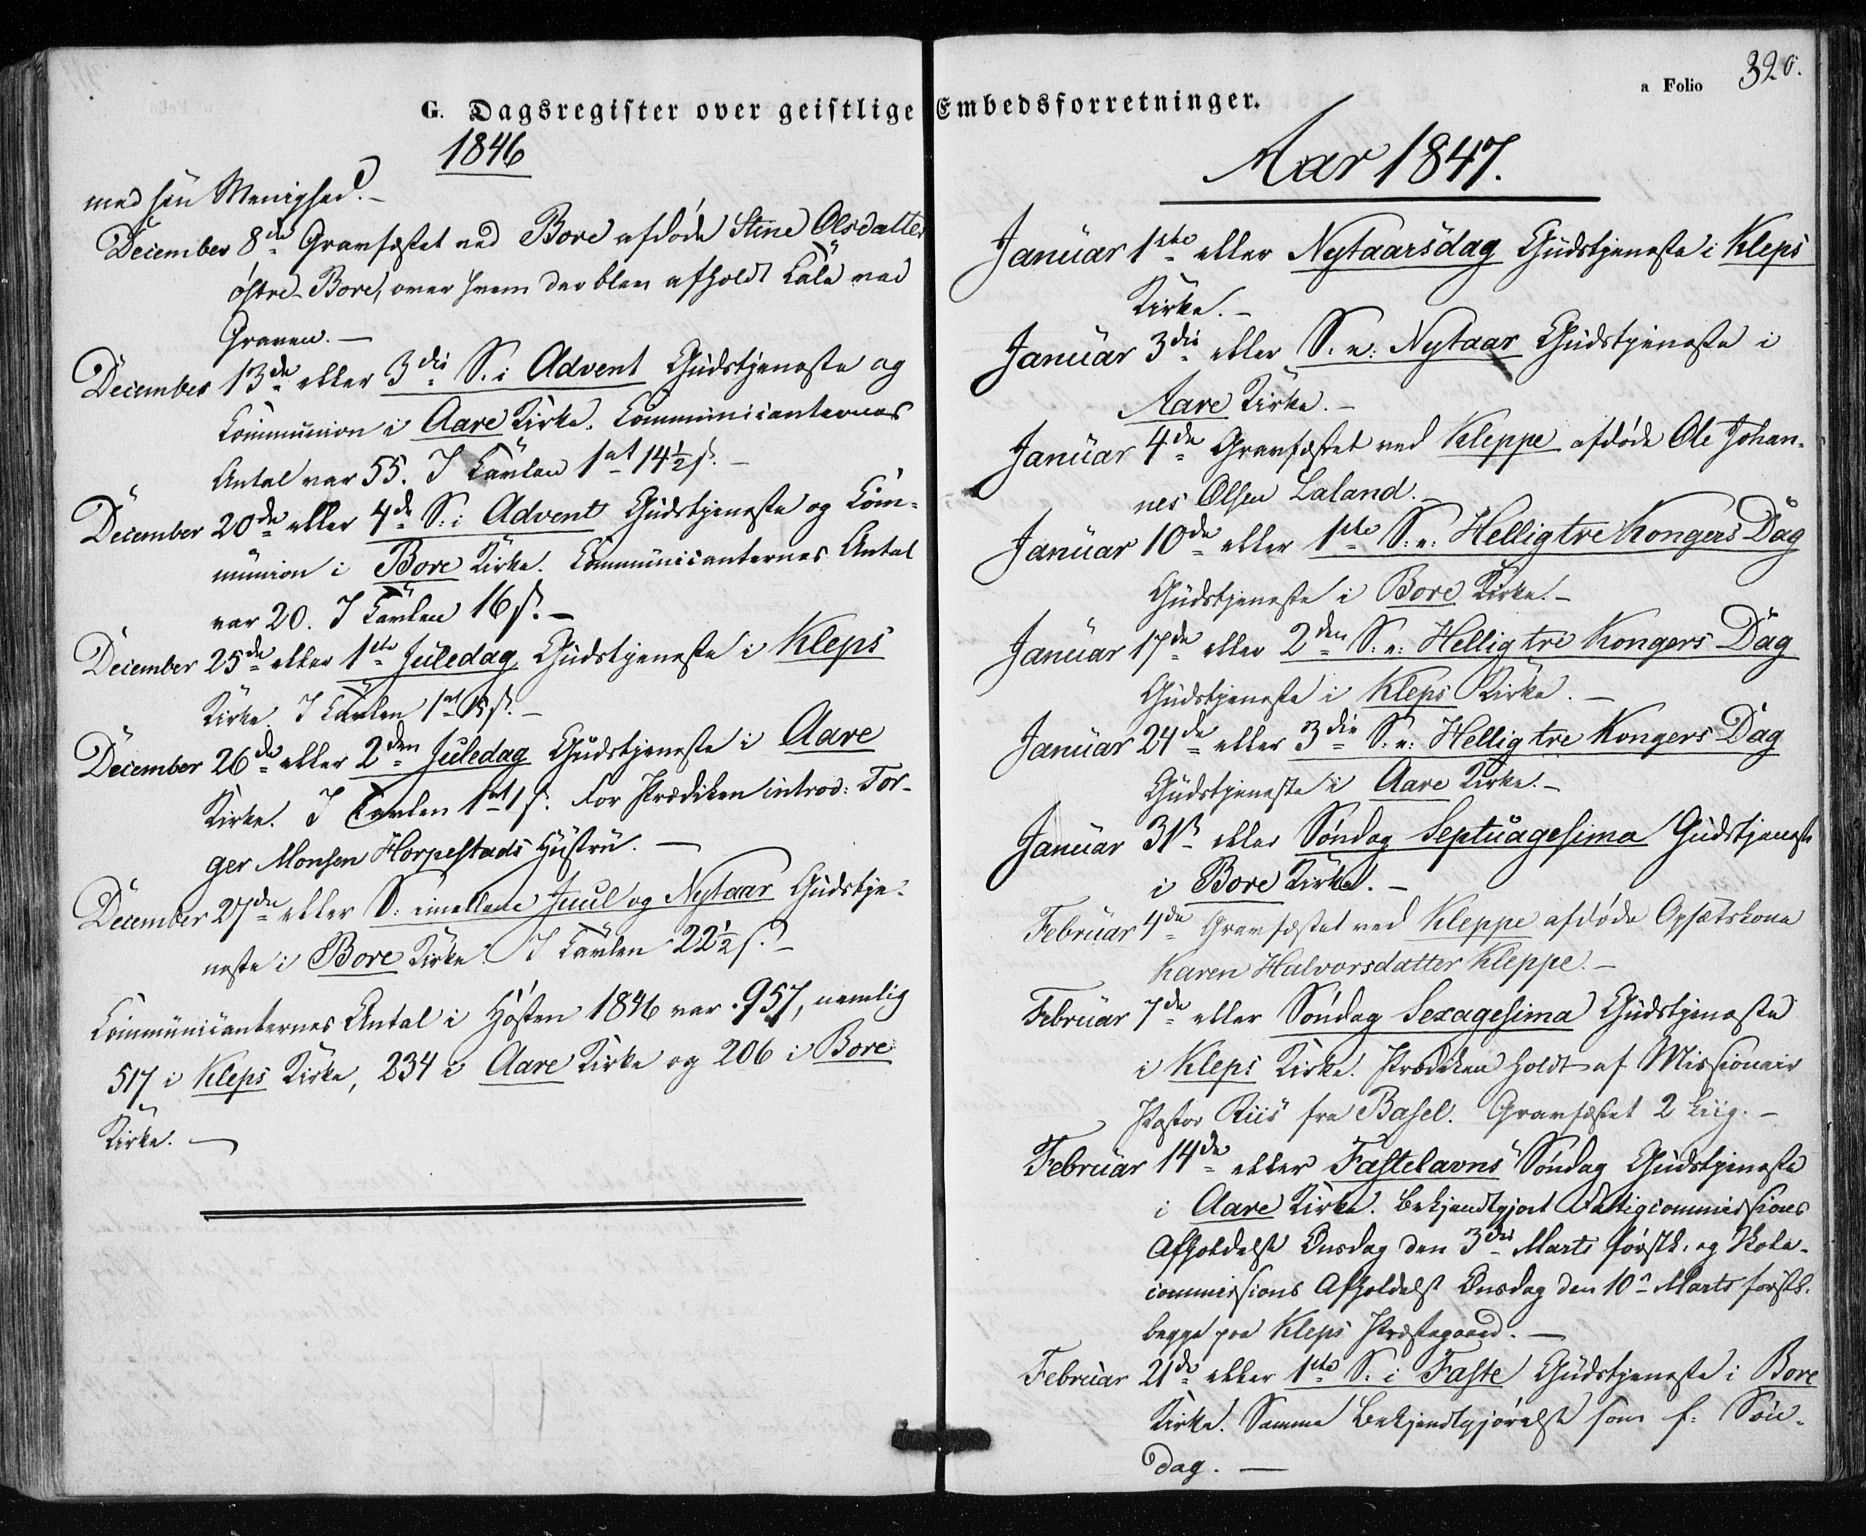 G. Dagsregister over geistlige Embedsforretninger.
a Folio 320.
1846
med sin Menighed. –
December 8de Gravfæstet ved Bore afdøde Stine Olsdatter
østre-Bore, over hvem der blev afholdt Tale ved
Graven. –
December 13de eller 3die S. i Advent Gudstjeneste og
Communion i Aare Kirke. Communicanternes
Antal var 55. I Tavlen 1ort 14½ s. –
December 20de eller 4de S: i Advent Gudstjeneste og Com-
munion i Bore Kirke. Communicanternes Antal
var 20. I Tavlen 16 s. –
December 25de eller 1ste Juledag Gudstjeneste i Kleps
Kirke. I Tavlen 1ort s. –
December 26de eller 2den Juledag Gudstjeneste i Aare
Kirke. I Tavlen 1ort 1 s. For Prædiken introd: Tor-
ger Monsen Horpestads Hustru. –
December 27de eller S: imellem Juul og Nytaar Gudstje-
neste i Bore Kirke. I Tavlen 22½ s. –
Communicanternes Antal i Høsten 1846 var 957, nemlig
517 i Kleps Kirke, 234 i Aare Kirke og 206 i Bore
Kirke. –
Aar 1847.
Januar 1ste eller Nytaarsdag Gudstjeneste i Kleps
Kirke. –
Januar 3die eller S. e: Nytaar Gudstjeneste i
Aare Kirke. –
Januar 4de Gravfæstet ved Kleppe afdøde Ole Johan-
nes Olsen Laland. –
Januar 10de eller 1ste S: e: Hellig tre Kongers Dag
Gudstjeneste i Bore Kirke. –
Januar 17de eller 2den S. e: Hellig tre Kongers Dag
Gudstjeneste i Kleps Kirke. –
Januar 24de eller 3die S. e: Hellig tre Kongers Dag
Gudstjeneste i Aare Kirke. –
Januar 31te eller Søndag Septuagesima Gudstjeneste
i Bore Kirke. –
Februar 4de Gravfæstet ved Kleppe afdøde Opsætskone
Karen Halvorsdatter Kleppe. –
Februar 7de eller Søndag Sexagesima Gudstjeneste
i Kleps Kirke. Prædiken holdt af Missionair
Pastor Riis fra Basel. Gravfæstet 2 Liig. –
Februar 14de eller Fastelavns Søndag Gudstjeneste
i Aare Kirke. Bekjendtgjort Fattigcommissions
Afholdelse Onsdag den 3die Marts førstk. og Skole-
commissions Afholdelse Onsdag den 10de Marts førstk.
begge paa Kleps Præstegaard. –
Februar 21de eller 1ste S. i Faste Gudstjeneste i Bore
Kirke. Samme Bekjendtgjørelse som f: Søn-
dag. –